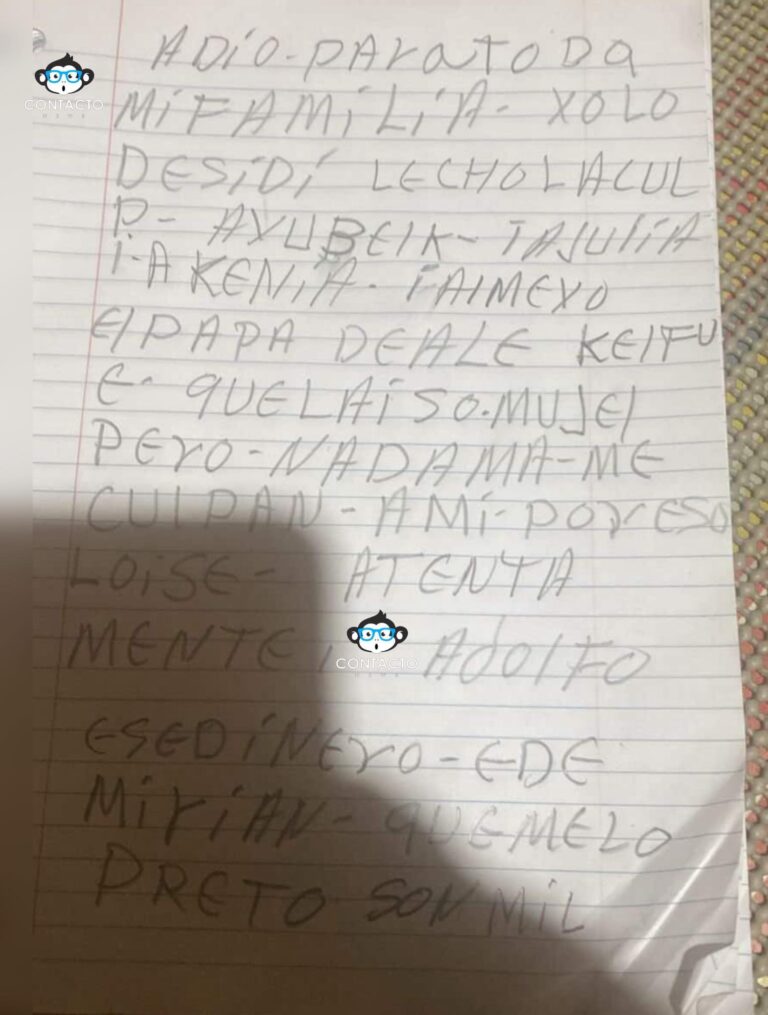 ADiO-PAraTODa
CONTACTO
MiFAMiLiA- XOLO
DESiDi LECHOLACUL
P- AYUBEIK-IAJULiA
i-A KENIA-IAIMEXO
EIPAPA DEALE KEIFU
E- QUELAiSO.MUJEI
PEro-NADAMA-ME
CUIPAN-AMi-POrESO
LOiSE- ATENTA
MENTE AdOlFO
CONTACTO
ESEDiNEro-EDE
MiriAN-QUEMELO
PRETO SON MiL